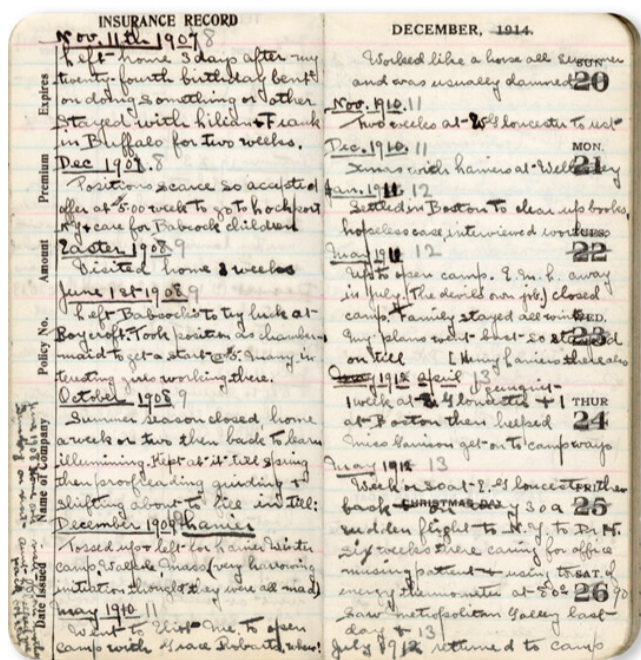 INSURANCE RECORD
Nov. 11th 1907 8
Left home 3 days after my
twenty-fourth birthday bent
on doing something or other
Stayed with Lilian & Frank
in Buffalo for two weeks.
Dec 1907. 8
Positions scarce so accepted
offer at 5.00 week to go to Lockport
N.Y. & care for Babcock children
Easter 1908 9
Visited home 2 weeks
June 1st 1908 9
Left Babcocks to try luck at
Roycroft. Took position as chamber-
maid to get a start @ 5. Many in-
teresting girls working there.
October 1908 9
Summer season closed, home
a week or two then back to learn
illumining. Kept at it till spring
then proofreading grinding &
shifting about to fill in till:
December 1909 Lanier
Tossed up & left for Lanier Winter
camp Mass. (very harrowing
initiation thought they were all mad)
May 1910 11
Went to Eliot Me. to open
camp with Grace Robarts, whew!
Expires
Premium
Amount
Policy No.
Name of Company
Date Issued
DECEMBER, 1914.
Worked like a horse all summer
and was usually damned
SUN
20
Nov. 1910. 11
Two weeks at Gloucester to rest
Dec. 1910. 11
MON.
21
Xmas with Laniers at
Jan. 1911 12
Settled in Boston to clear up books,
hopeless case, interviewed
TUES.
22
May 1911 12
Up to open camp. away
in July. (The devil's own job) closed
camp. & Family stayed all winter
WED.
23
My plans went bust so stayed
on till [Henry Laniers there also
1912 April 13
1 week at E. Gloucester + 1
THUR
24
at Boston then helped
Miss get on to camp ways
May 1912 13
Week or so at E. Gloucester then
FRI
25
CHRISTMAS DAY
back
sudden flight to N.Y. to Dr. M.
six weeks there caring for office
nursing patient & using
SAT.
26
energy thermometer at 80° 90
Saw metropolitan Galley last
day & 13
July 1912 returned to camp